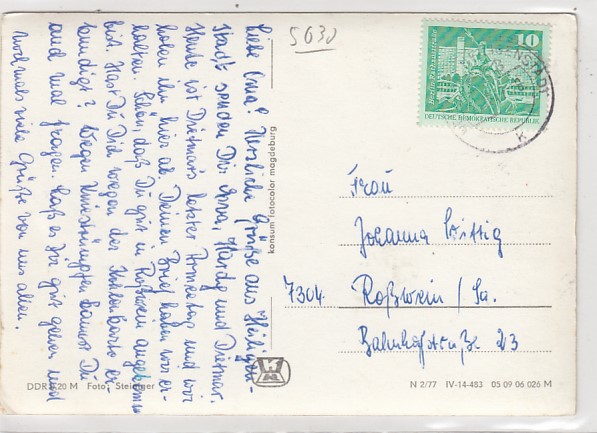 Liebe Oma! Herzliche Grüße aus Heiligen-
stadt senden Dir Hardy und Dietmar.
Heute ist Dietmars letzter und wir
holen ihn hier ab. Deinen Brief haben wir er-
halten. Schön, daß Du gut in Roßwein angekommen
bist. Hast Du Dich wegen der Kohlenkarte er-
kundigt? Wegen kannst Du
auch mal fragen. Laß es Dir gut gehen und
nochmals viele Grüße von uns allen.
5630
10
Berlin · Rathausstraße
DEUTSCHE DEMOKRATISCHE REPUBLIK
k
Frau
Johanna Wittig
7304 Roßwein / Sa.
Bahnhofstraße 23
konsum fotocolor magdeburg
DDR 0,20 M Foto: Steiniger
N 2/77 IV-14-483 05 09 06 026 M